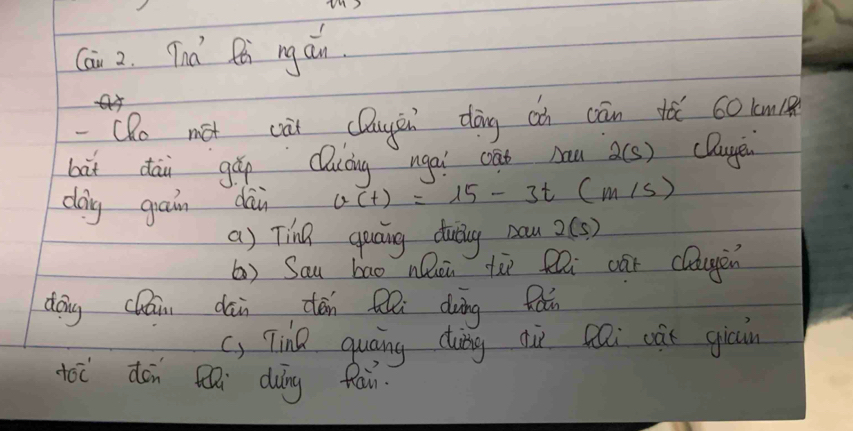 Câu 2. Trả lời ngắn.
- Cho một vật chuyển động có vận tốc 60 km/h
bắt đầu gặp chướng ngại vật sau 2(s) chuyển
động giảm dần v(t) = 15 - 3t (m/s)
a) Tính quãng đường sau 2(s)
b) Sau bao nhiêu từ khi vật chuyển
động chậm dần đến khi dừng hẳn
c, Tính quãng đường từ khi vật giảm
tốc đến khi dừng hẳn.